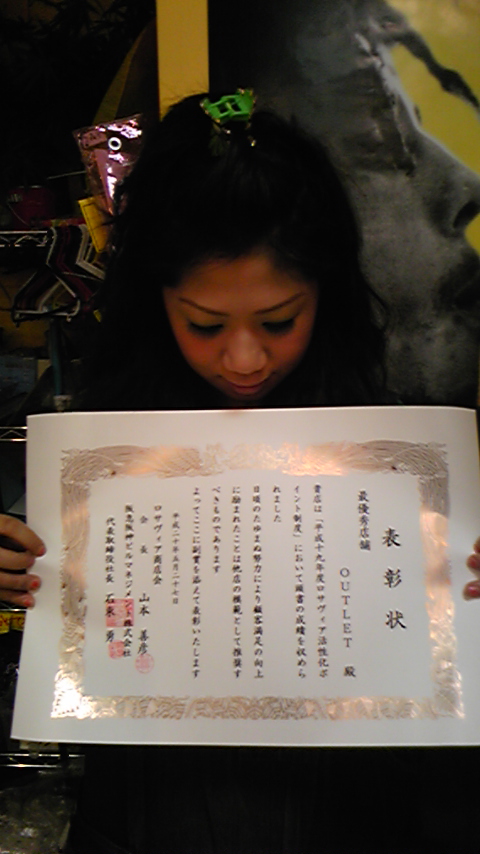 表彰状
最優秀店舗
OUTLET 殿
貴店は「平成十九年度ロサヴィア活性化ポ
イント制度」において頭書の成績を収めら
れました
日頃のたゆまぬ努力により顧客満足の向上
に励まれたことは他店の模範として推奨す
べきものであります
よってここに副賞を添えて表彰いたします
平成二十年五月二十七日
ロサヴィア商店会
会長 山本 善彦
阪急阪神ビルマネジメント株式会社
代表取締役社長 勇